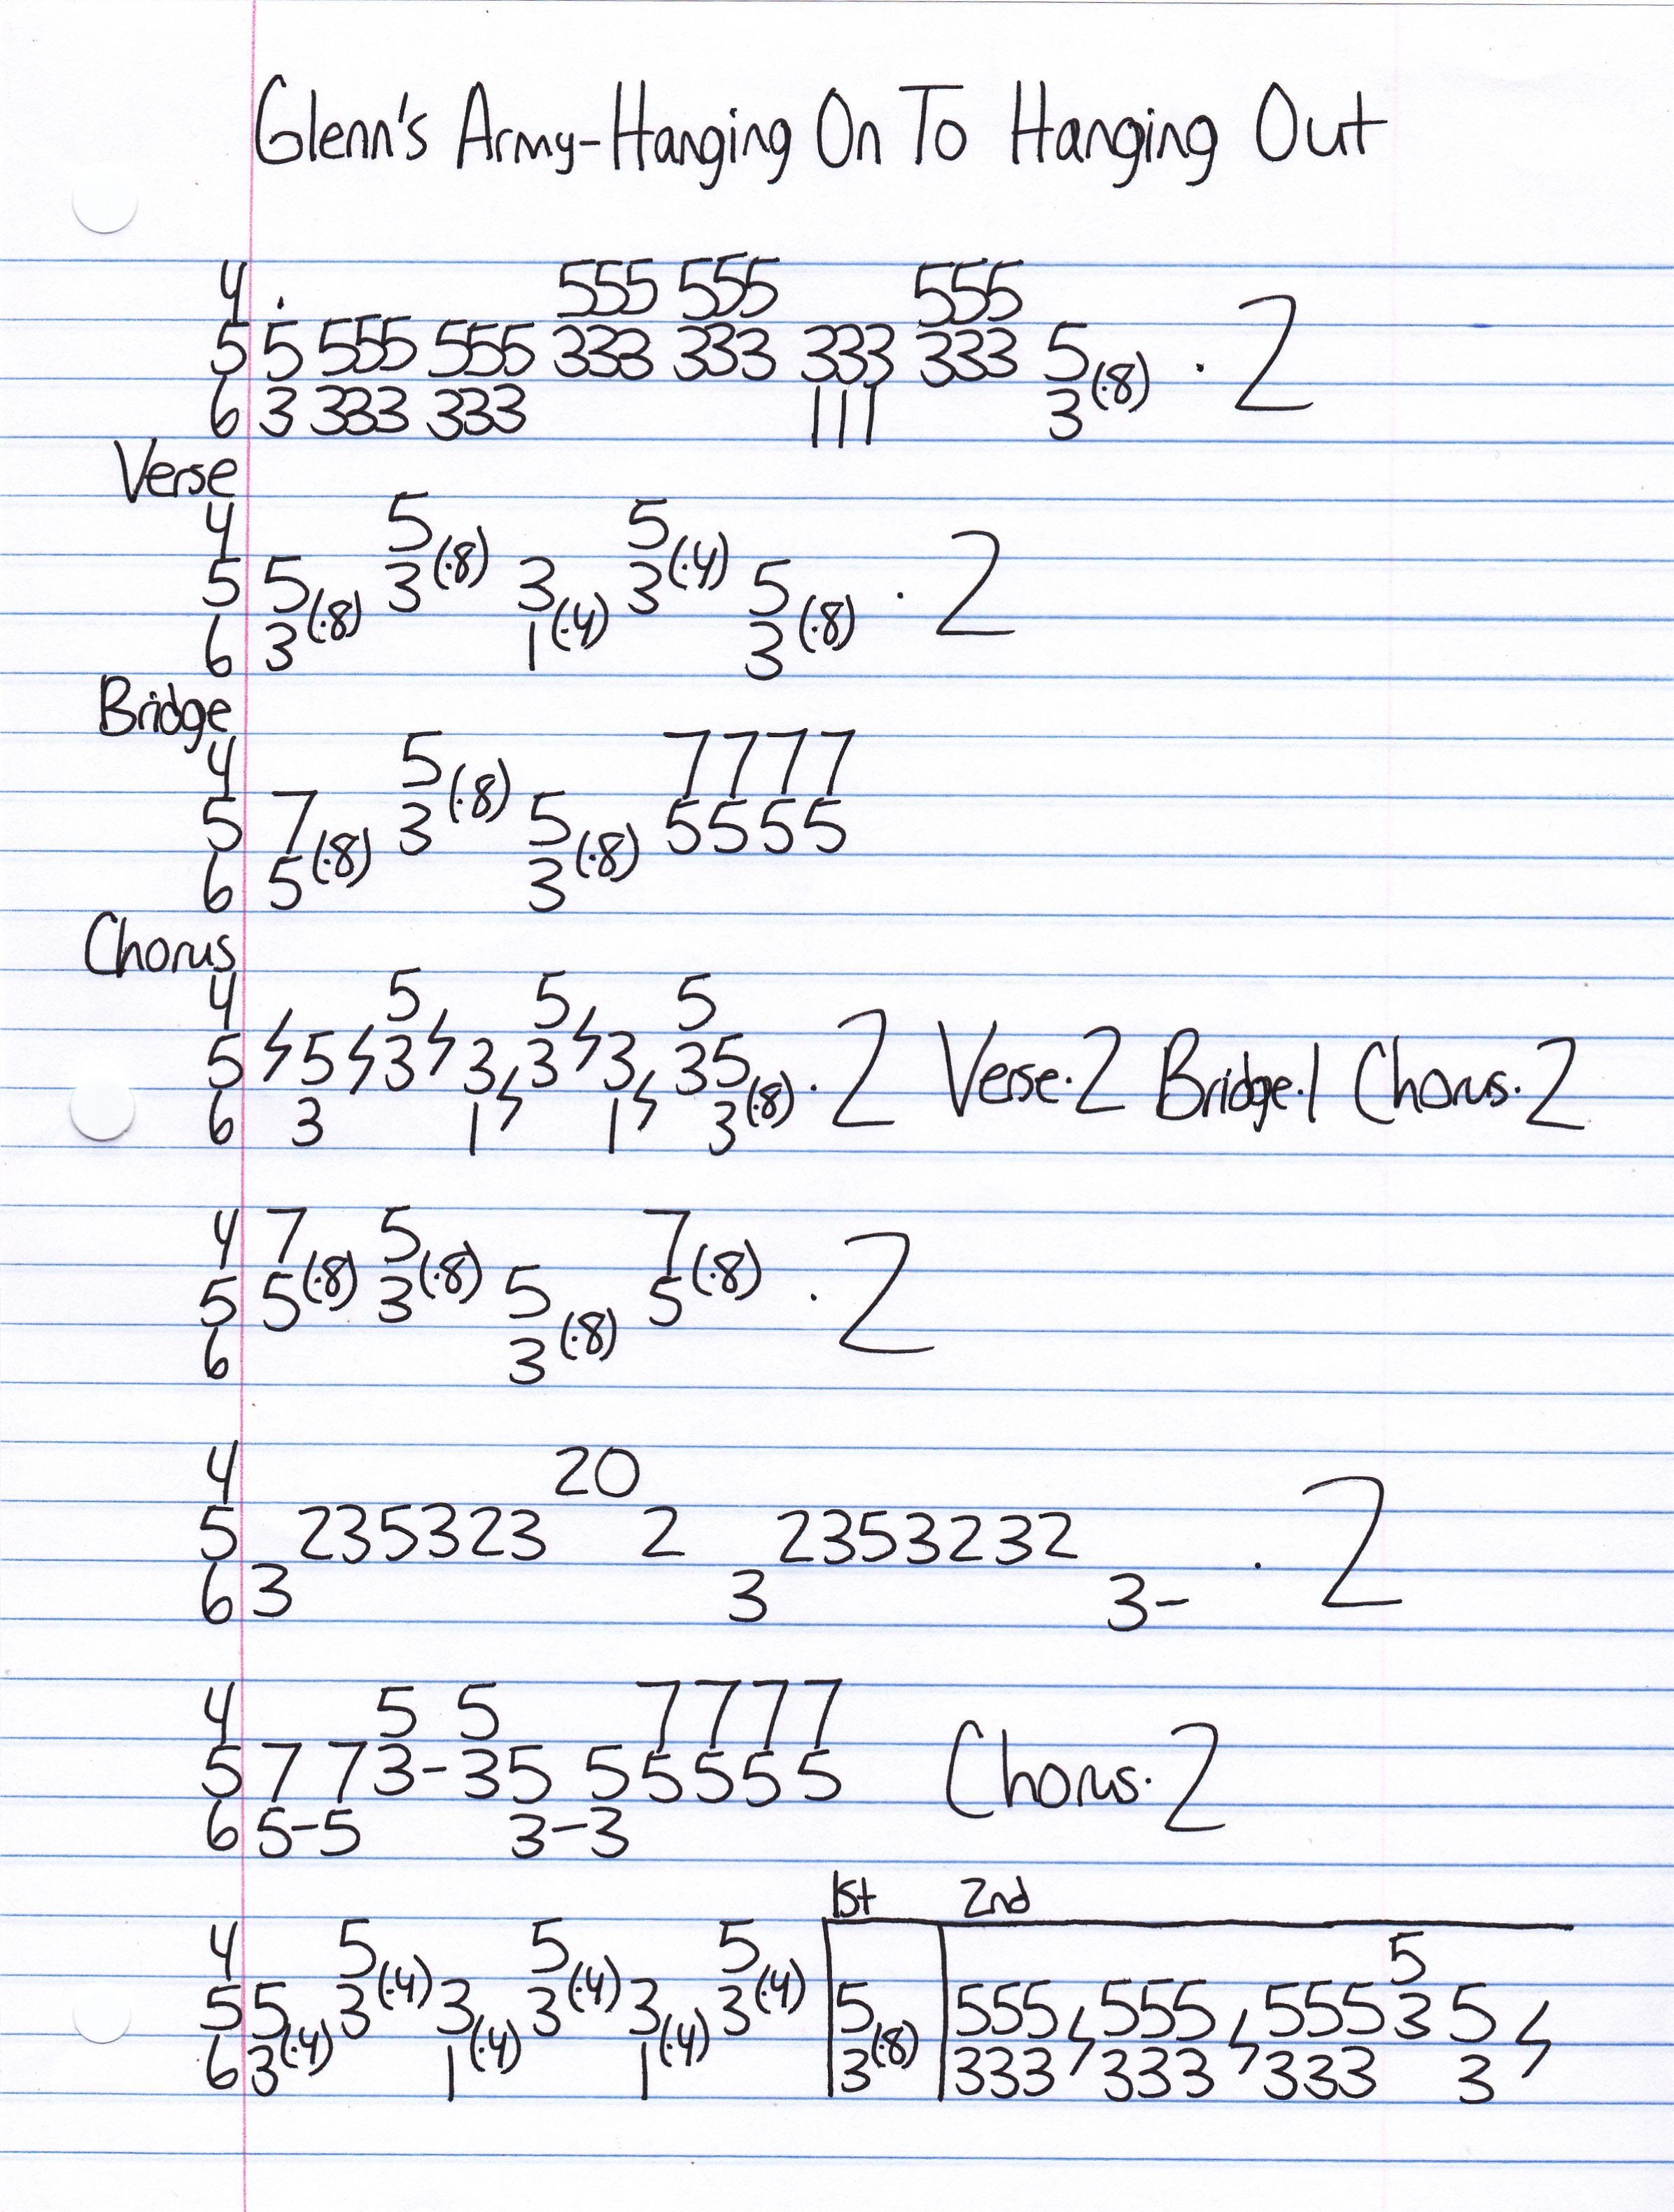 Glenn's Army-Hanging On To Hanging Out
4 . 555 555 555
5 5 555 555 333 333 333 333 5 (·8) · 2
6 3 333 333 111 3
Verse
4 5 5
5 5 (·8) 3 (·8) 3 (·4) 3 (·4) 5 (·8) · 2
6 3 1 3
Bridge
4 5 7777
5 7 (·8) 3 (·8) 5 (·8) 5555
6 5 3
Chorus
4 5 5 5
5 5 3 3 3 3 35 (·8) · 2 Verse·2 Bridge·1 Chorus·2
6 3 1 1 3
4 7 5 7
5 5 (·8) 3 (·8) 5 (·8) 5 (·8) · 2
6 3
4 20
5 235323 2 2353232
6 3 3 3- · 2
4 5 5 7777
5 7 73-35 55555 Chorus·2
6 5-5 3-3
1st 2nd
4 5 5 5 5
5 5 (·4) 3 (·4) 3 (·4) 3 (·4) 3 (·4) 3 (·4) 5 (·8) 555 555 555 3 5
6 3 1 1 3 333 333 333 3